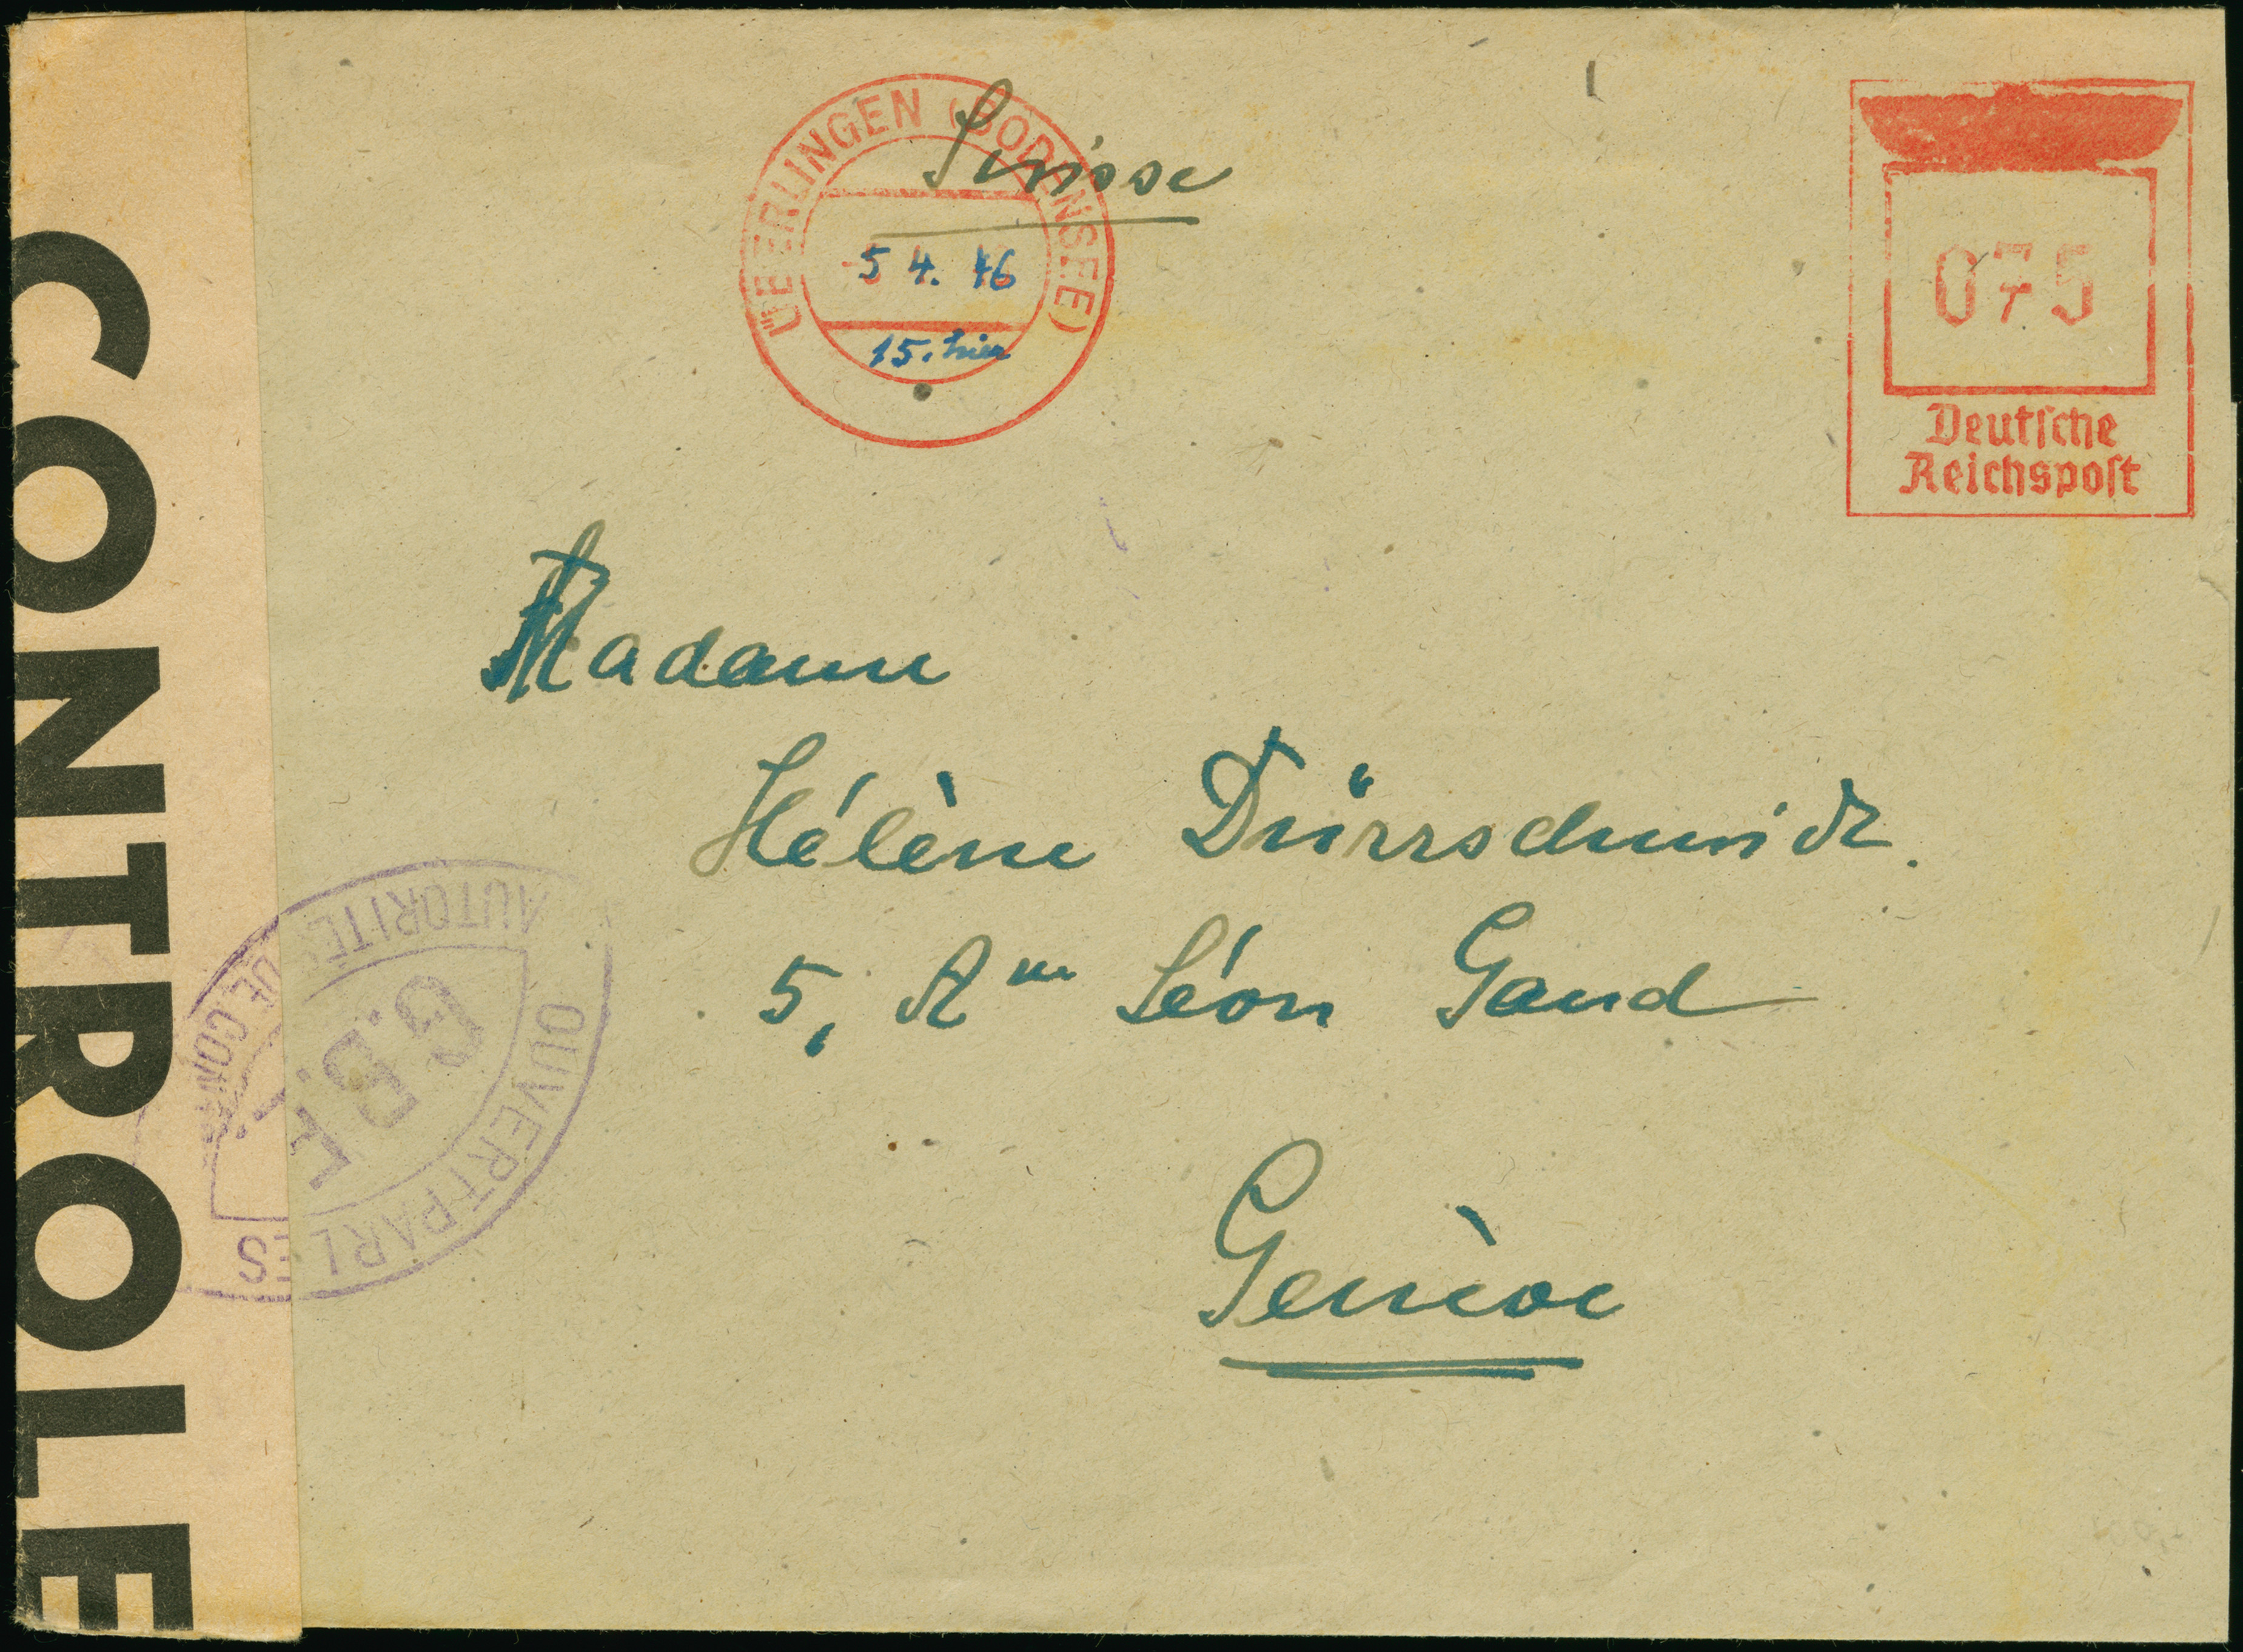 ÜBERLINGEN (BODENSEE)
Suisse
-5 4. 46
15. hier
075
Deutsche
Reichspost
CONTROLE
Madame
Hélène Dürrschmidt.
5, Rue Léon Gaud
Genève
OUVERT PAR LES
AUTORITÉS DE CONT